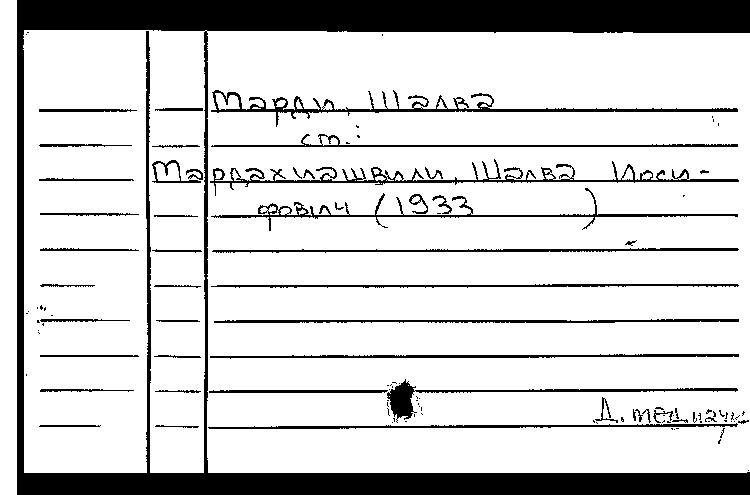 Марди, Шалва
ст.:
Мардахиашвили, Шалва Иоси-
фович (1933 )
Д. мед. наук